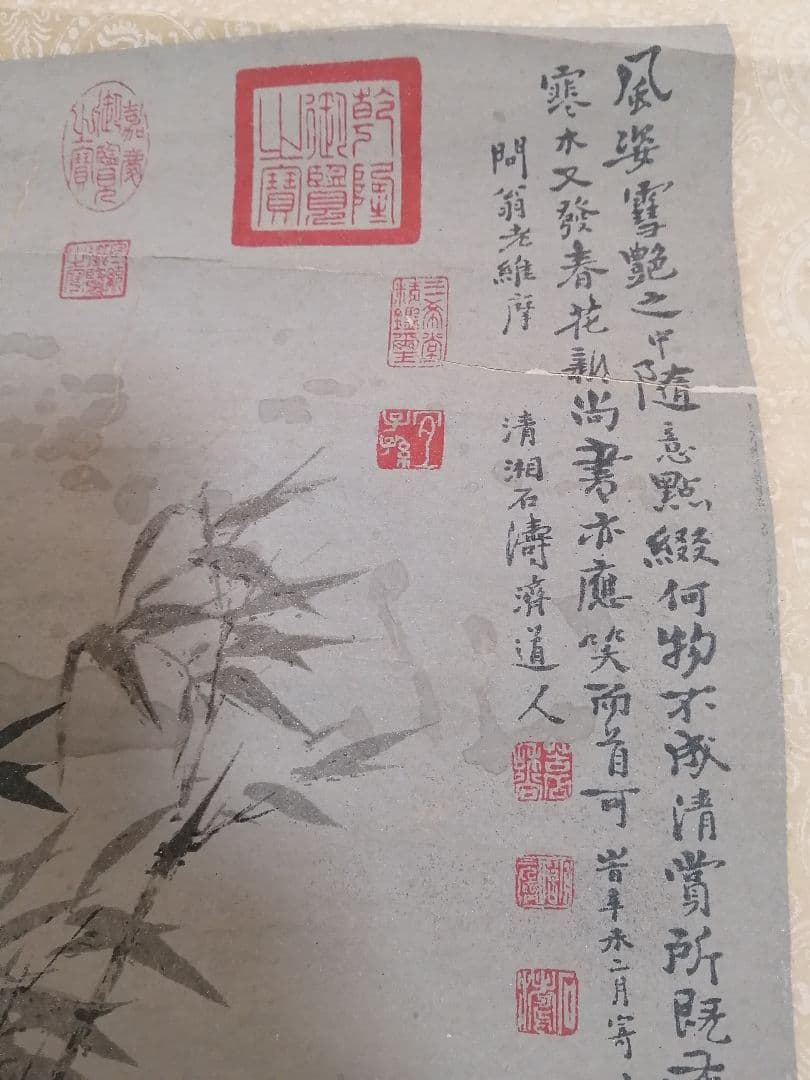 風姿雪艷之中隨意點綴何物不成清賞所既
寒木又發春花新尚書亦應笑而首可
昔辛未二月寄
問翁老維摩
清湘石濤濟道人
乾隆御覽之寶
嘉慶御覽之寶
三希堂精鑑璽
宜子孫